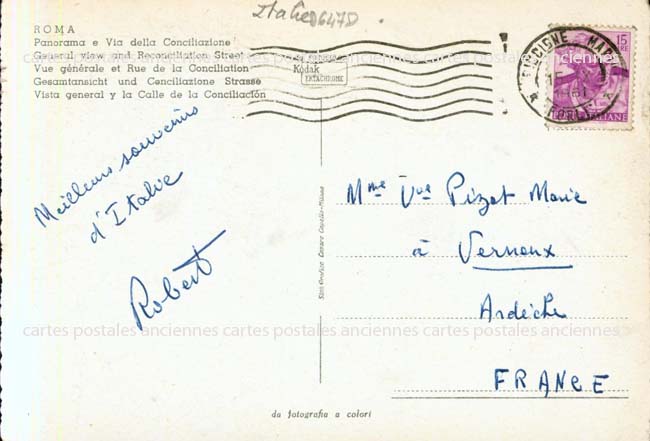 Italie D647D
ROMA
Panorama e Via della Conciliazione
General view and Reconciliation Street
Vue générale et Rue de la Conciliation
Gesamtansicht und Cenciliazione Strasse
Vista general y la Calle de la Conciliación
Kodak
EKTACHROME
15
LIRE
ITALIANE
cartes postales anciennes cartes postales anciennes cartes postales anciennes
Meilleurs souvenirs
d'Italie
Robert
Mme Vve Pizot Marie
à Vernoux
Ardèche
FRANCE
cartes postales anciennes cartes postales anciennes cartes postales anciennes
da fotografia a colori